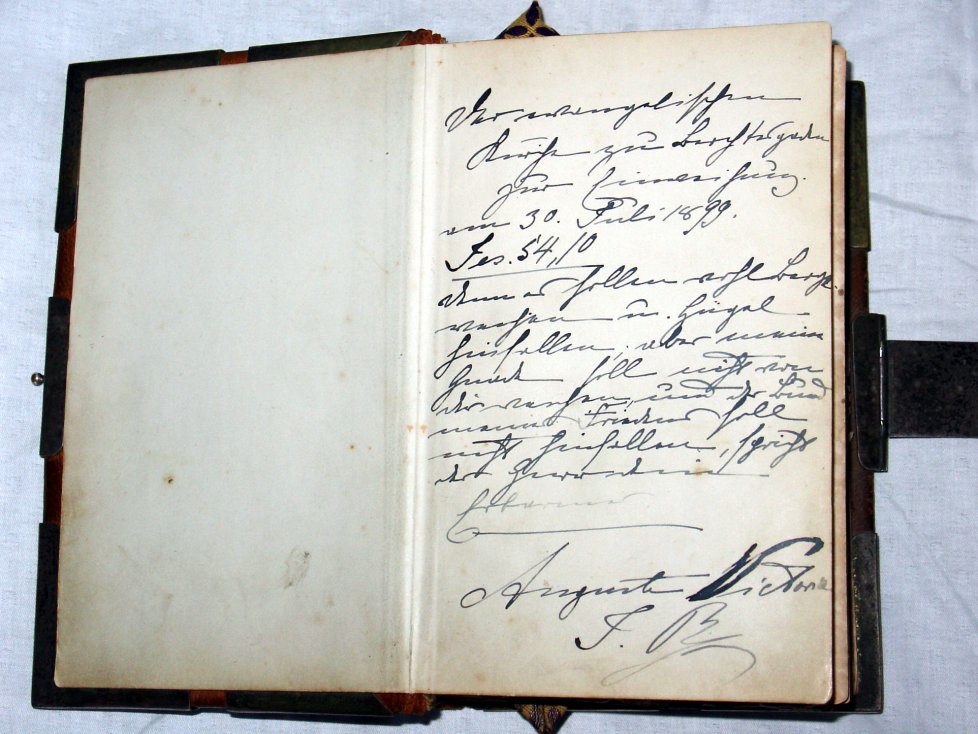 Der evangelischen
Kirche zu Berchtesgaden
zur Einweihung.
am 30. Juli 1899.
Jes. 54,10
denn es sollen wohl Berge
weichen u. Hügel
hinfallen, aber meine
Gnade soll nicht von
dir weichen, und der Bund
meines Friedens soll
nicht hinfallen, spricht
der Herr dein
Erbarmer
Auguste Victoria
I. R.